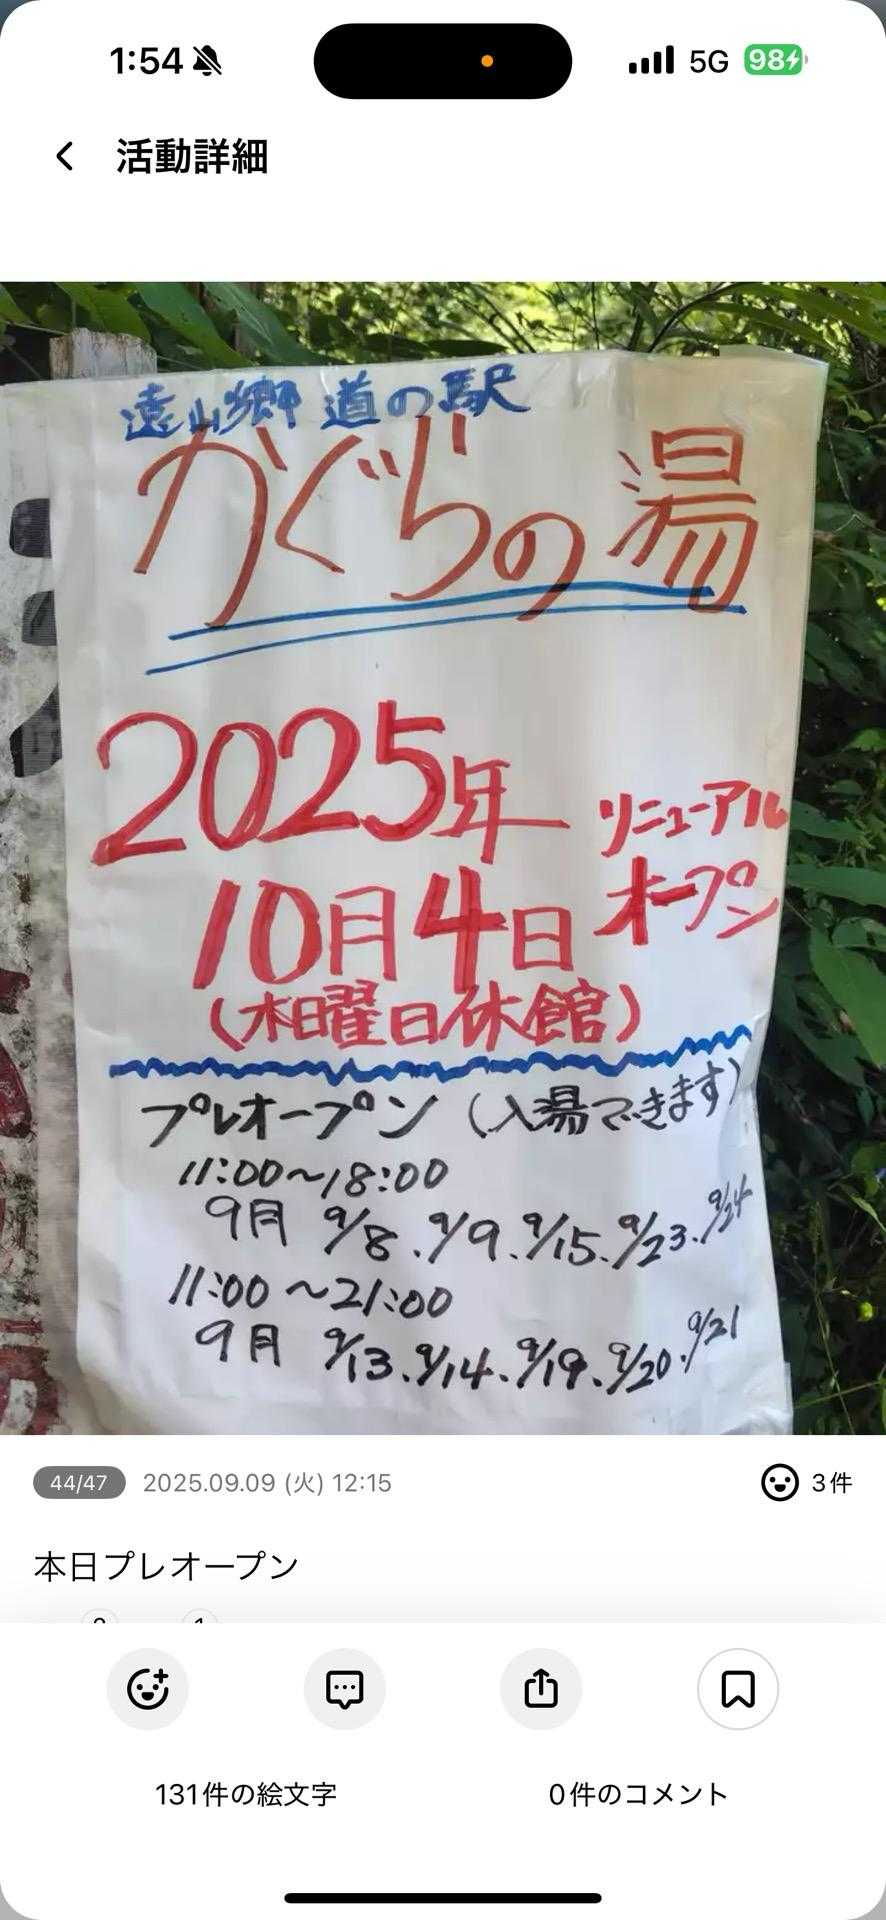 1:54
5G
98
活動詳細
遠山郷 道の駅
かぐらの湯
2025年 リニューアル
10月4日 オープン
(木曜日休館)
プレオープン (入湯できます)
11:00〜18:00
9月 9/8.9/9.9/15.9/23.9/24
11:00〜21:00
9月 9/13.9/14.9/19.9/20.9/21
44/47 2025.09.09 (火) 12:15 3件
本日プレオープン
131件の絵文字 0件のコメント